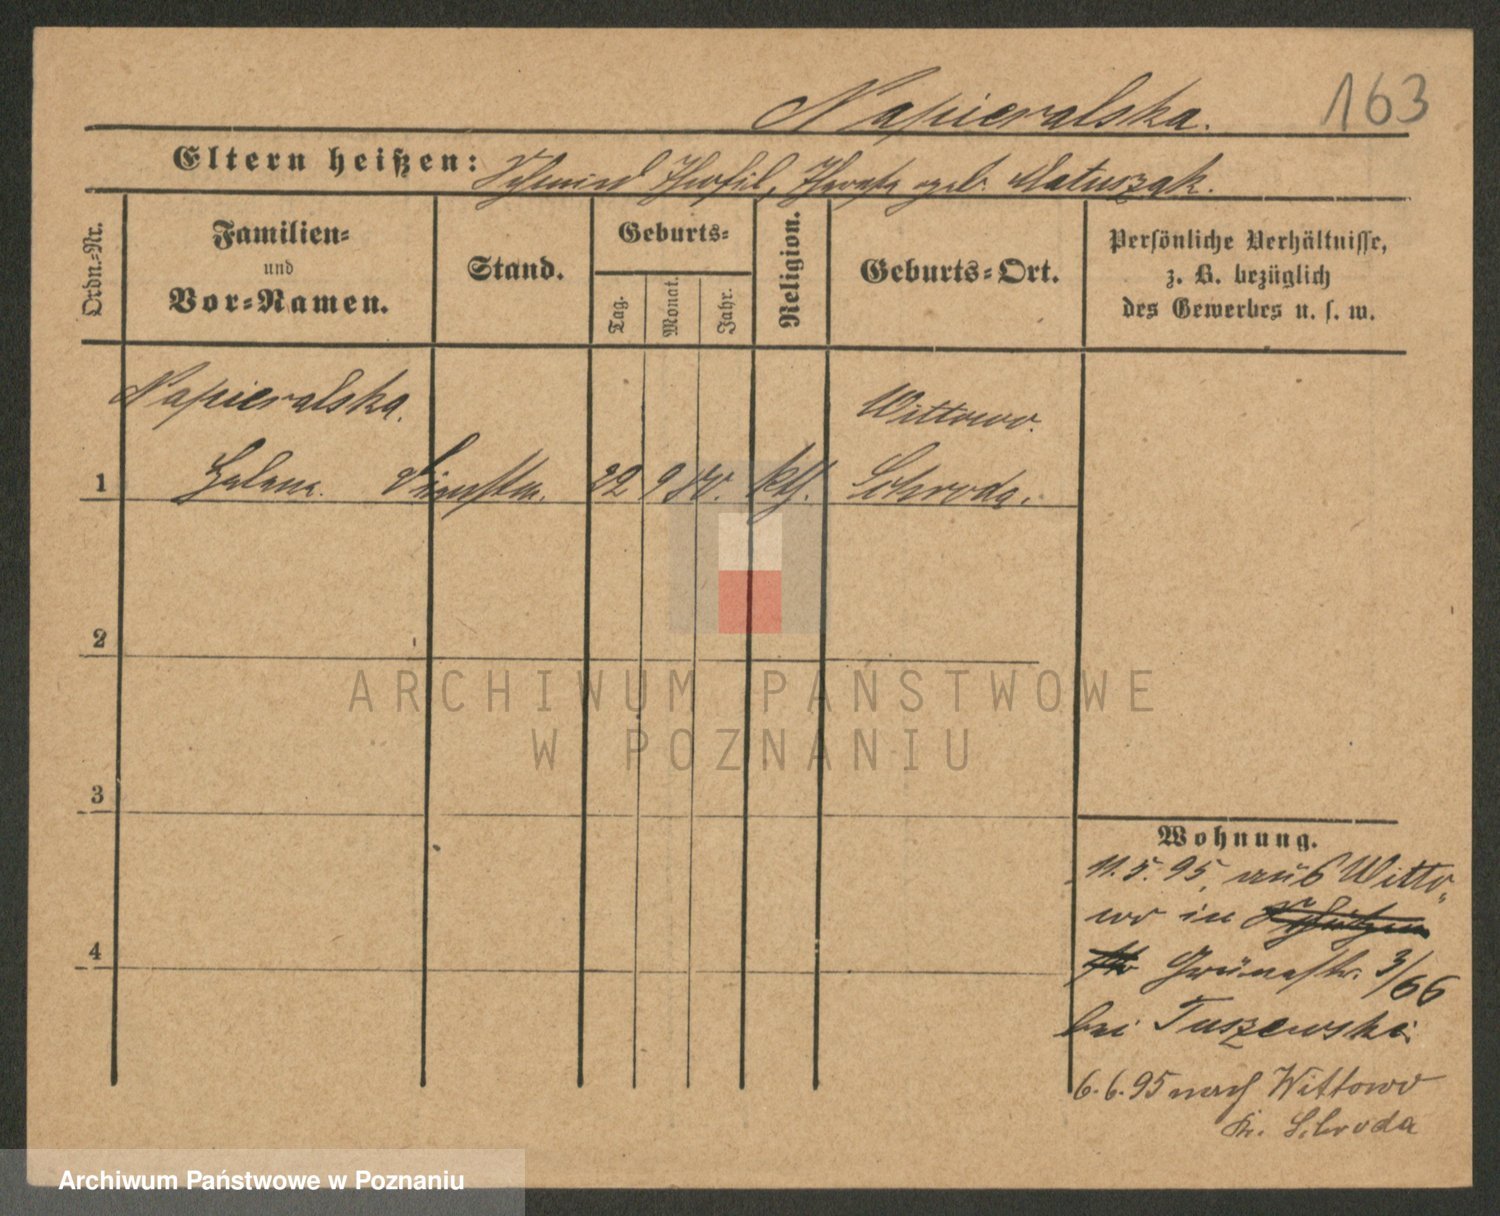 163
Napieralska.
Eltern heißen: Schmied Theofil, Therese geb. Matuszak.
Ordn.-Nr.
Familien-
und
Vor-Namen.
Stand.
Geburts-
Tag.
Monat.
Jahr.
Religion.
Geburts-Ort.
Persönliche Verhältnisse,
z. B. bezüglich
des Gewerbes u. s. w.
Napieralska.
Wittowo.
1 Helena. 22 9 kth. Schroda.
2
3
4
Wohnung.
11.5.95. aus Witto-
wo in Schützen
str Grünestr. 3/66
bei Tuszewski
6.6.95 nach Wittowo
Kr. Schroda
ARCHIWUM PAŃSTWOWE
W POZNANIU
Archiwum Państwowe w Poznaniu